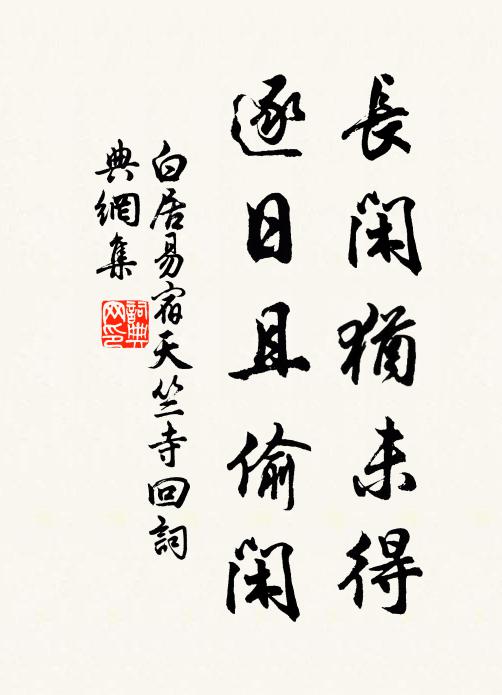 長閑猶未得
逐日且偷閑
白居易宿天竺寺回詞
典網集
詞典網印